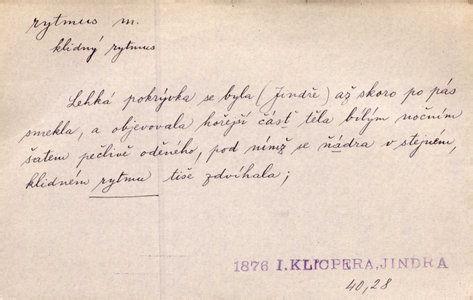 rytmus m.
klidný rytmus
Lehká pokrývka se byla (Jindře) až skoro po pás
smekla, a objevovala hořejší část těla bílým nočním
šatem pečlivě oděného, pod nímž se ňádra v stejném,
klidném rytmu tiše zdvíhala;
1876 I.KLICPERA,JINDRA
40,28